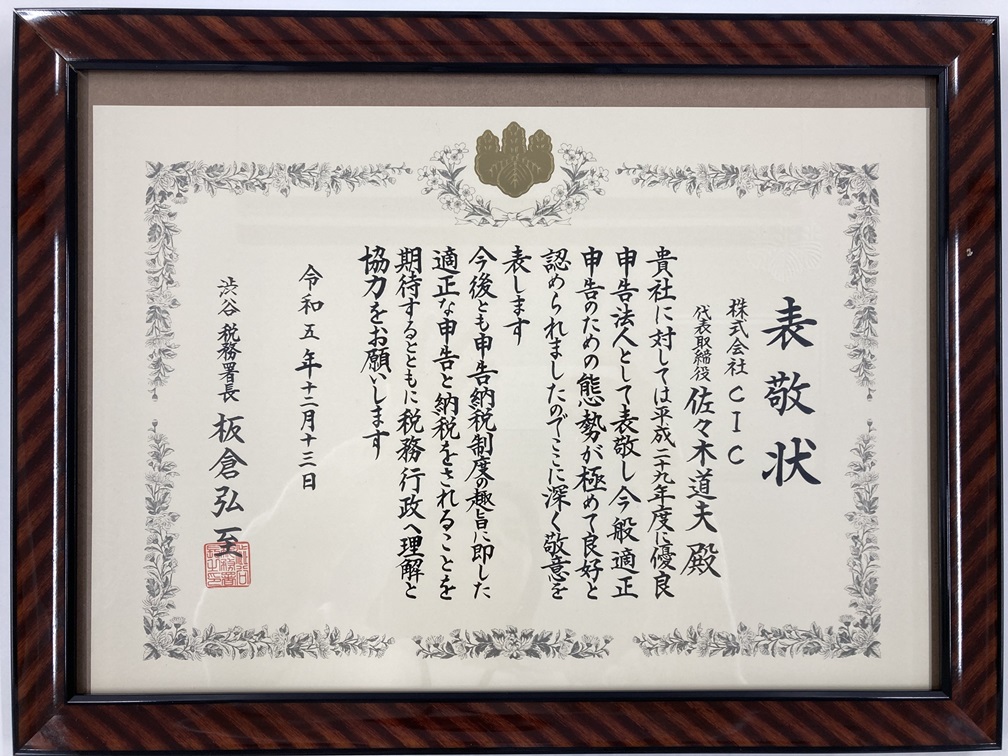 表敬状
株式会社CIC
代表取締役 佐々木道夫 殿
貴社に対しては平成二十九年度に優良
申告法人として表敬し今般適正
申告のための態勢が極めて良好と
認められましたのでここに深く敬意を
表します
今後とも申告納税制度の趣旨に即した
適正な申告と納税をされることを
期待するとともに税務行政へ理解と
協力をお願いします
令和五年十二月十三日
渋谷税務署長 板倉弘至